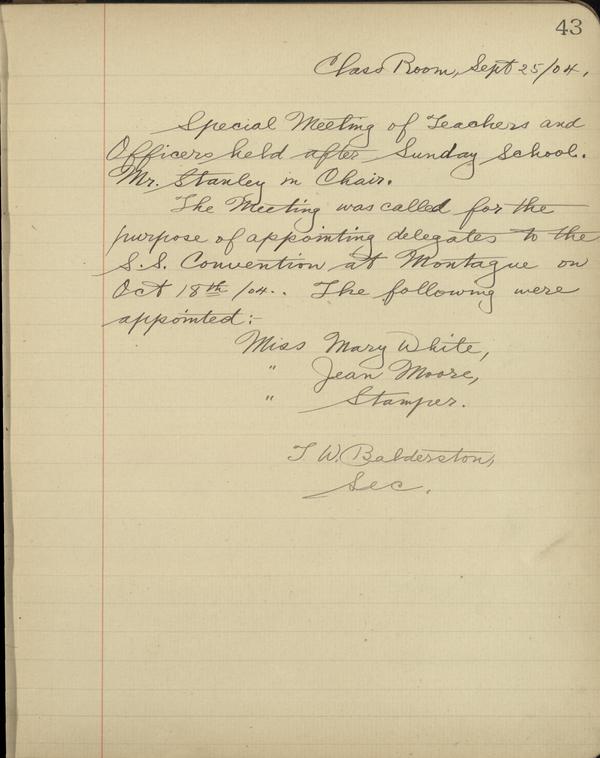 43
Class Room, Sept 25/04.
Special Meeting of Teachers and
Officers held after Sunday School.
Mr. Stanley in Chair.
The Meeting was called for the
purpose of appointing delegates to the
S.S. Convention at Montague on
Oct 18th /04.. The following were
appointed:-
Miss Mary White,
" Jean Moore,
" Stamper.
T. W. Balderston,
Sec.